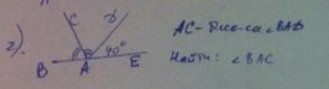 2).
C D
40°
B A E
AC - бис-са ∠BAD
Найти: ∠BAC